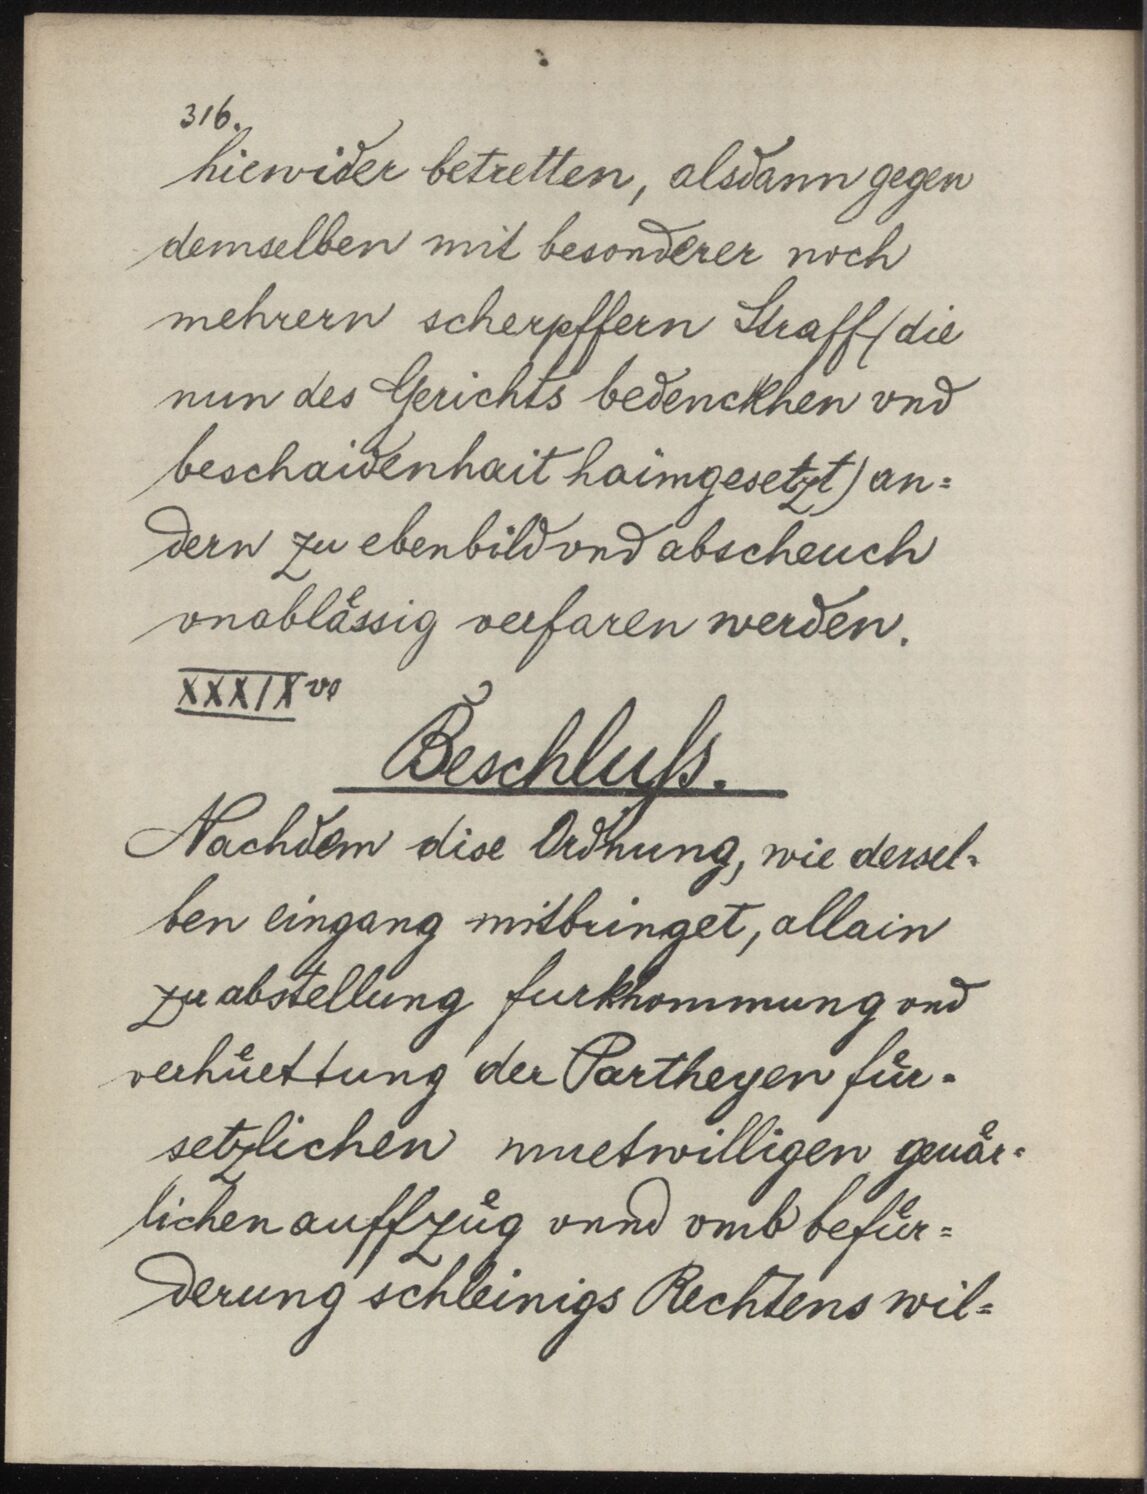 316.
hiewider betretten, alsdann gegen
demselben mit besonderer noch
mehrern scherpffern Straff (die
nun des Gerichts bedenckhen vnd
beschaidenhait haimgesetzt) an=
dern zu ebenbild vnd abscheuch
vnablåssig verfaren werden.
XXXIX vo
Beschluſs.
Nachdem dise Ordnung, wie dersel=
ben eingang mitbringet, allain
zu abstellung furkhommung vnd
verhuͤettung der Partheyen fuͤr=
setzlichen muetwilligen geuaͤr=
lichen auffzuͤg vnnd vmb befuͤr=
derung schleinigs Rechtens wil=